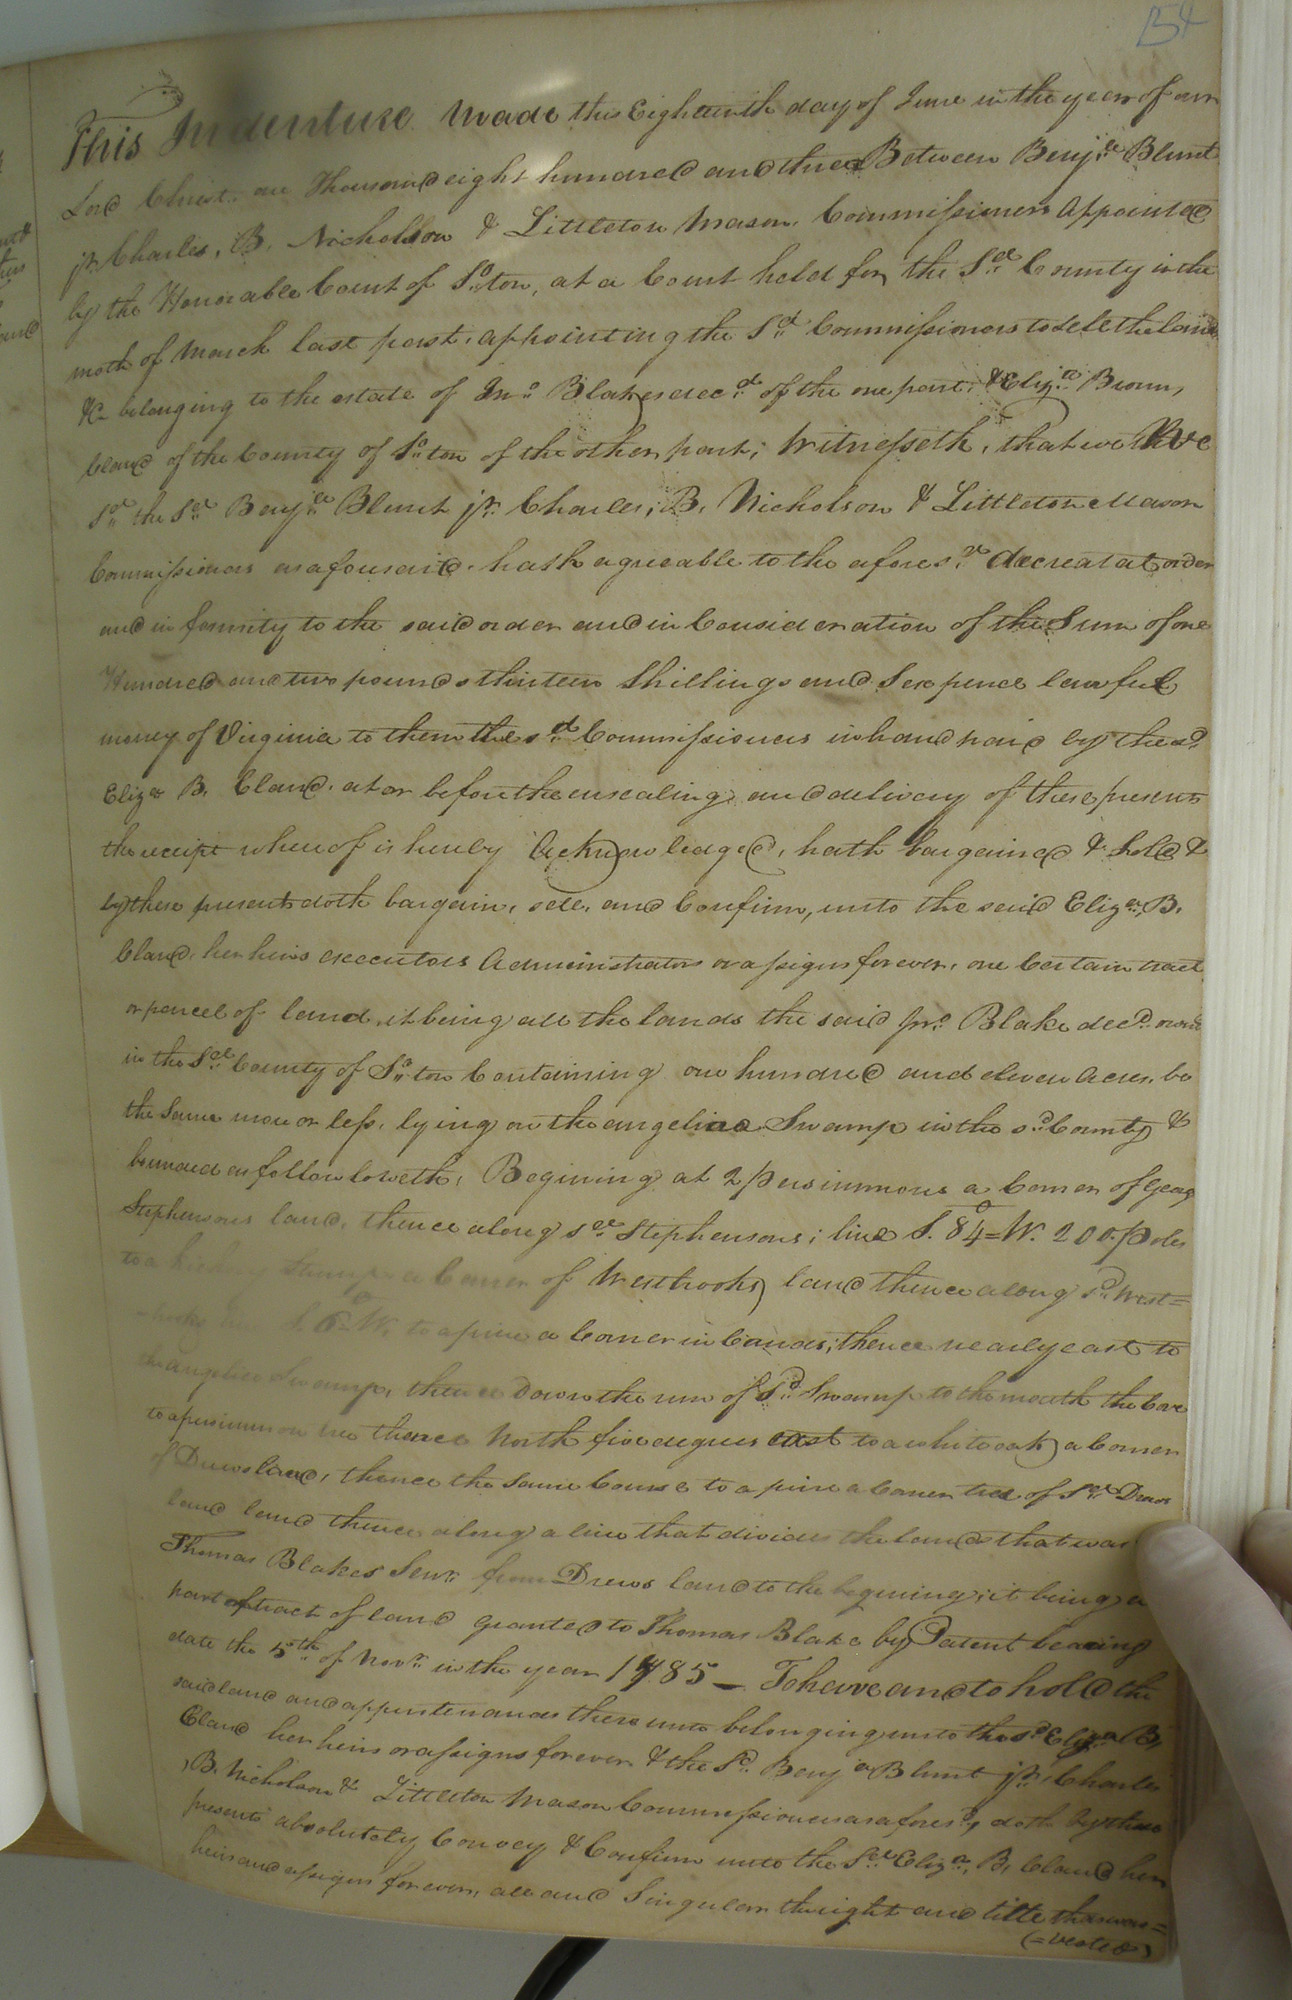 154
This Indenture made this Eighteenth day of June in the year of our
Lord Christ. one Thousand eight hundred and three Between Benjn Blunt
jr. Charles, B. Nicholson & Littleton Mason. Commissioners Appointed
by the Honorable Court of So.ton, at a Court held for the Sd. County in the
moth of March last past, appointing the Sd. Commissioners to sell the land
&c belonging to the estate of Jno. Blakes decd. of the one part, & Eliza Brown,
Claud of the County of So.ton of the other part; Witnesseth, that we the
Sd. the Sd. Benja. Blunt jr. Charles, B. Nicholson & Littleton Mason
Commissioners as aforesaid. hath agreeable to the afores.d decreatal order
and in formity to the said order and in Consideration of the Sum of one
Hundred and two pounds thirteen Shillings and Sex pence lawful
money of Virginia to them the sd. Commissioners in hand paid by the sd.
Eliza B. Claud. at or before the ensealing and delivery of these presents
the receipt where of is hereby Acknowledged, hath bargained & Sold &
by these presents doth bargain, sell, and Confirm, unto the said Eliza. B.
Claud, her heirs executors Administrators or assigns forever, one Certain tract
or parcel of land, it being all the lands the said Jno. Blake decd. owned
in the Sd. County of So.ton Containing one hundred and eleven Acres, be
the Same more or less, lying on the angelica Swamp in the sd. County &
bounded as follow loweth, Begining at 2 persimmons a Corner of Georg
Stephensons land, thence along sd. Stephensons; line S. 84° W. 200. Poles
to a hickory Stump a Corner of Westbrooks land thence along sd. West=
=brooks line S. 6° W. to a pine a Corner in Canaes; thence nearly east to
the angelica Swamp, thence down the run of Sd. Swamp to the mouth the Cove
to a persimmon tree thence North five degrees east to a white oak a Corner
of Drews land, thence the Same Course to a pine a Corner tree of Sd. Drews
land land thence along a line that divides the lands that was
Thomas Blakes Senr. from Drews land to the begining; it being a
part of tract of land granted to Thomas Blake by Patent bearing
date the 5th. of Novr. in the year 1785 — To have and to hold the
said land and appurtenances there unto belonging unto the sd. Eliza B.
Claud her heirs or assigns forever & the Sd. Benja Blunt jr. Charles
B. Nicholson & Littleton Mason Commissioners as afores.d, doth by these
presents absolutely Convey & Confirm unto the Sd. Eliza. B. Claud her
heirs and assigns forever, all and Singular the right and title that was=
(=vested)